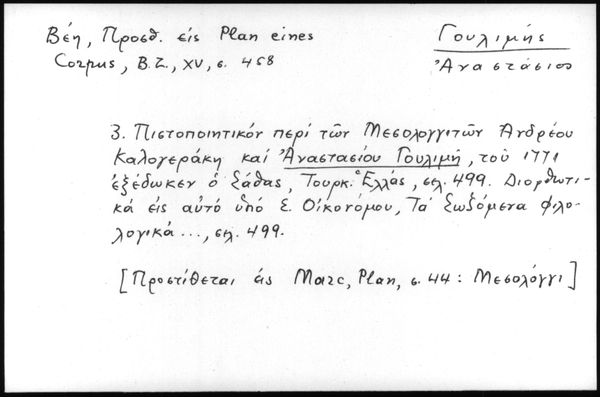 Βέη, Προσθ. εἰς Plan eines
Corpus, B.Z., XV, σ. 458
Γουλιμής
Ἀναστάσιος
3. Πιστοποιητικόν περί τῶν Μεσολογγιτῶν Ἀνδρέου
Καλογεράκη καί Ἀναστασίου Γουλιμῆ, τοῦ 1771
ἐξέδωκεν ὁ Σάθας, Τουρκ. Ἑλλάς, σελ. 499. Διορθωτι-
κά εἰς αὐτό ὑπό Σ. Οἰκονόμου, Τά Σωζόμενα φιλο-
λογικά..., σελ. 499.
[Προστίθεται εἰς Marc, Plan, σ. 44 : Μεσολόγγι]